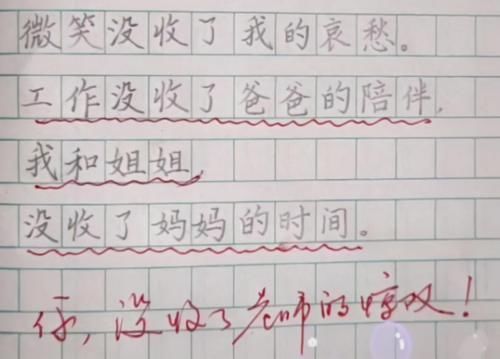 微笑没收了我的哀愁。
工作没收了爸爸的陪伴,
我和姐姐,
没收了妈妈的时间。
你,没收了老师的惊叹!